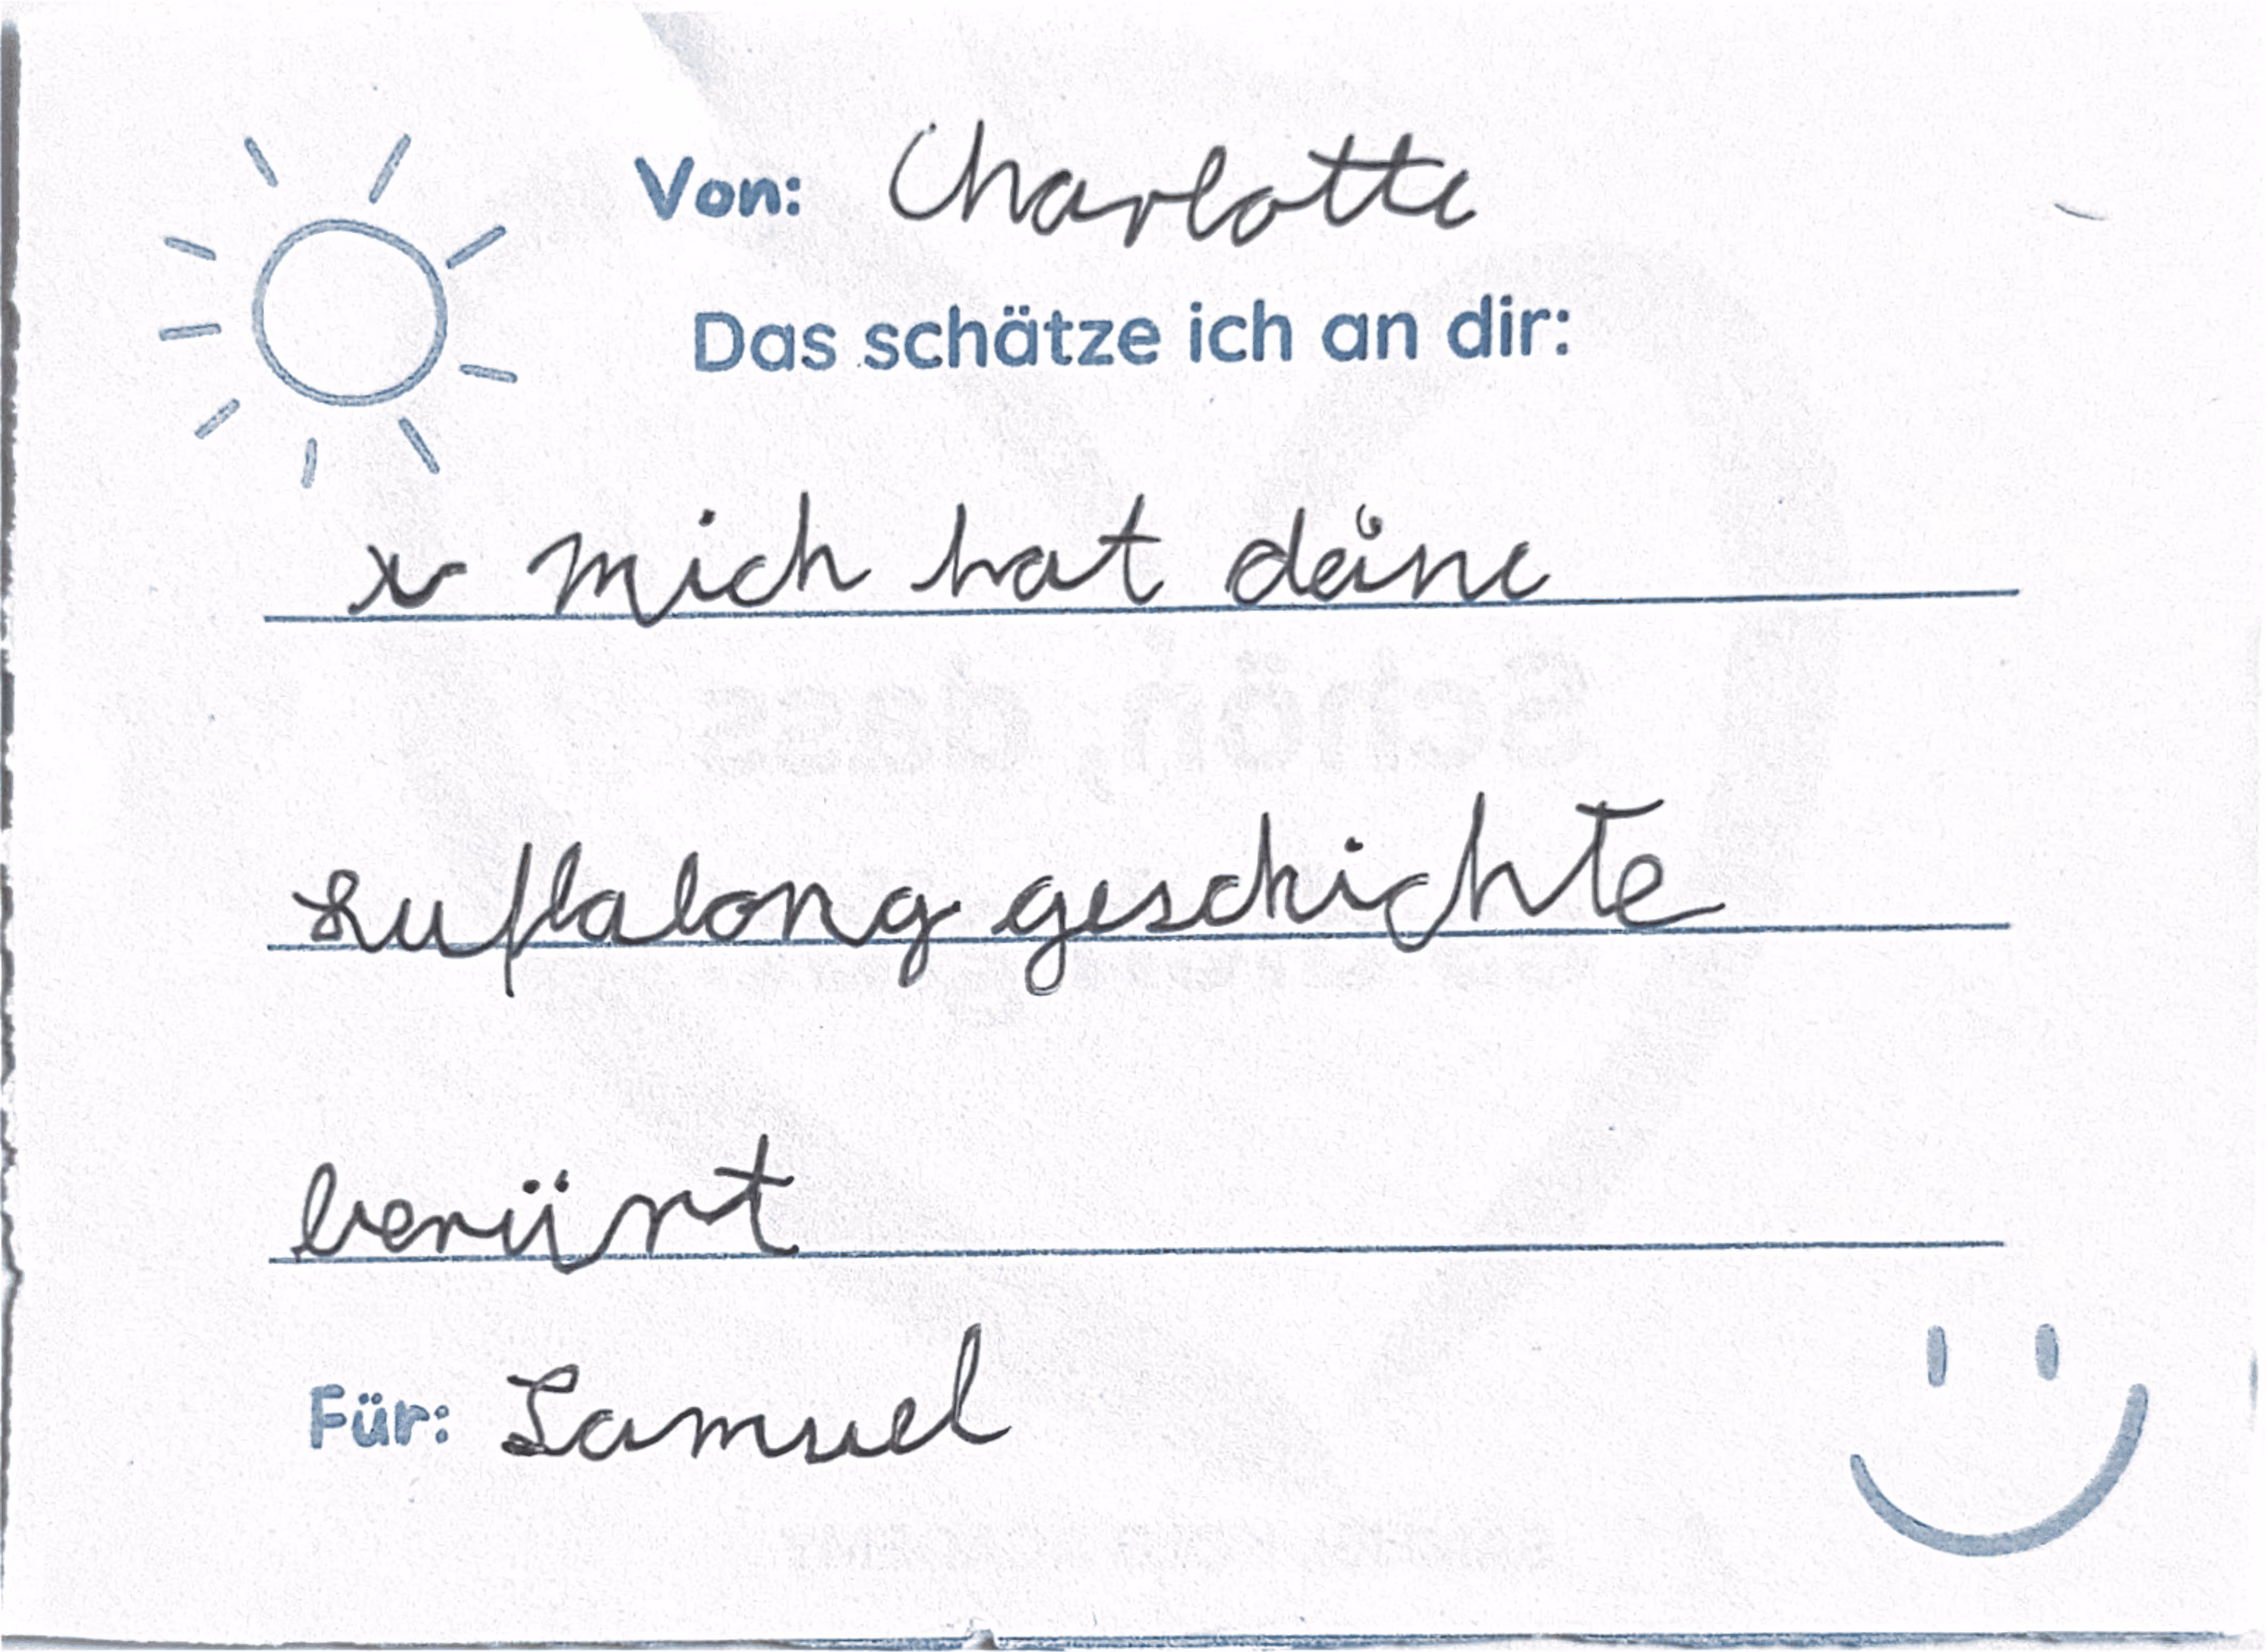 Von: Charlotte
Das schätze ich an dir:
x mich hat deine
Luflalong geschichte
berürt
Für: Samuel